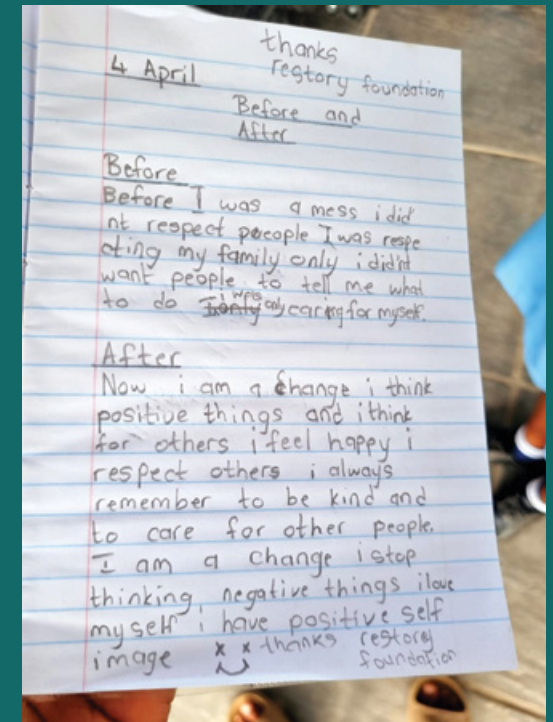 thanks
restory foundation
4 April
Before and
After
Before
Before I was a mess i did
nt respect poeople I was respe
cting my family only i didn't
want people to tell me what
to do i was only caring for myself.
After
Now i am a change i think
positive things and i think
for others i feel happy i
respect others i always
remember to be kind and
to care for other people.
I am a change i stop
thinking, negative things i love
myself i have positive self
image thanks restory
foundation